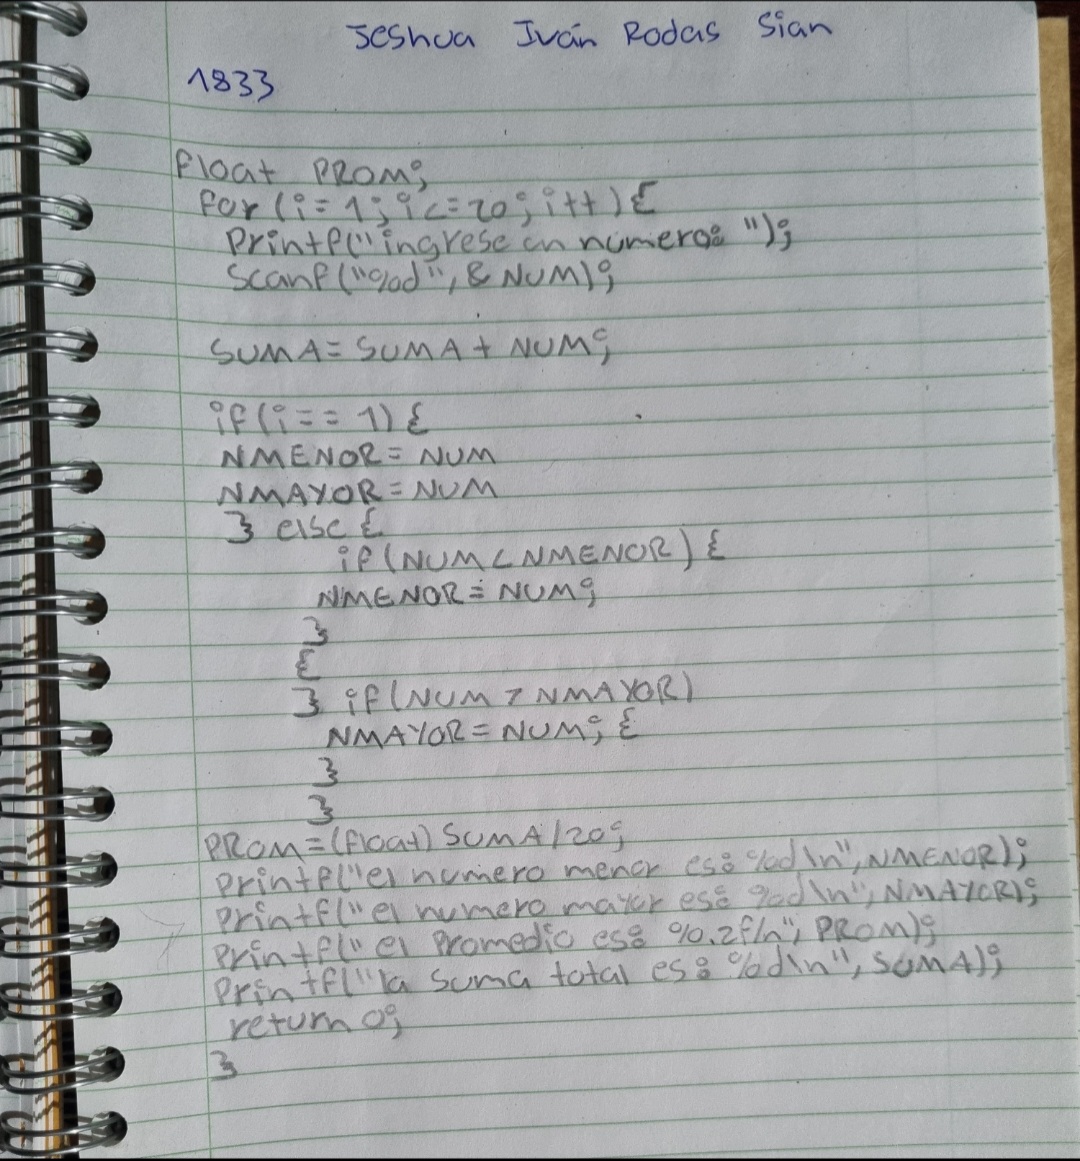 Jeshua Iván Rodas Sian
1833
float PROM;
for (i=1; i<=20; i++){
printf("ingrese un numero: ");
scanf("%d", & NUM);
SUMA= SUMA + NUM;
if(i== 1) {
NMENOR= NUM
NMAYOR= NUM
} else {
if(NUM < NMENOR) {
NMENOR= NUM;
}
{
} if(NUM > NMAYOR)
NMAYOR= NUM; {
}
}
PROM=(float) SUMA/20;
printf("el numero menor es: %d\n",NMENOR);
printf("el numero mayor es: %d\n", NMAYOR);
printf("el Promedio es: %.2f/n", PROM);
printf("la suma total es: %d\n", SUMA);
return 0;
}